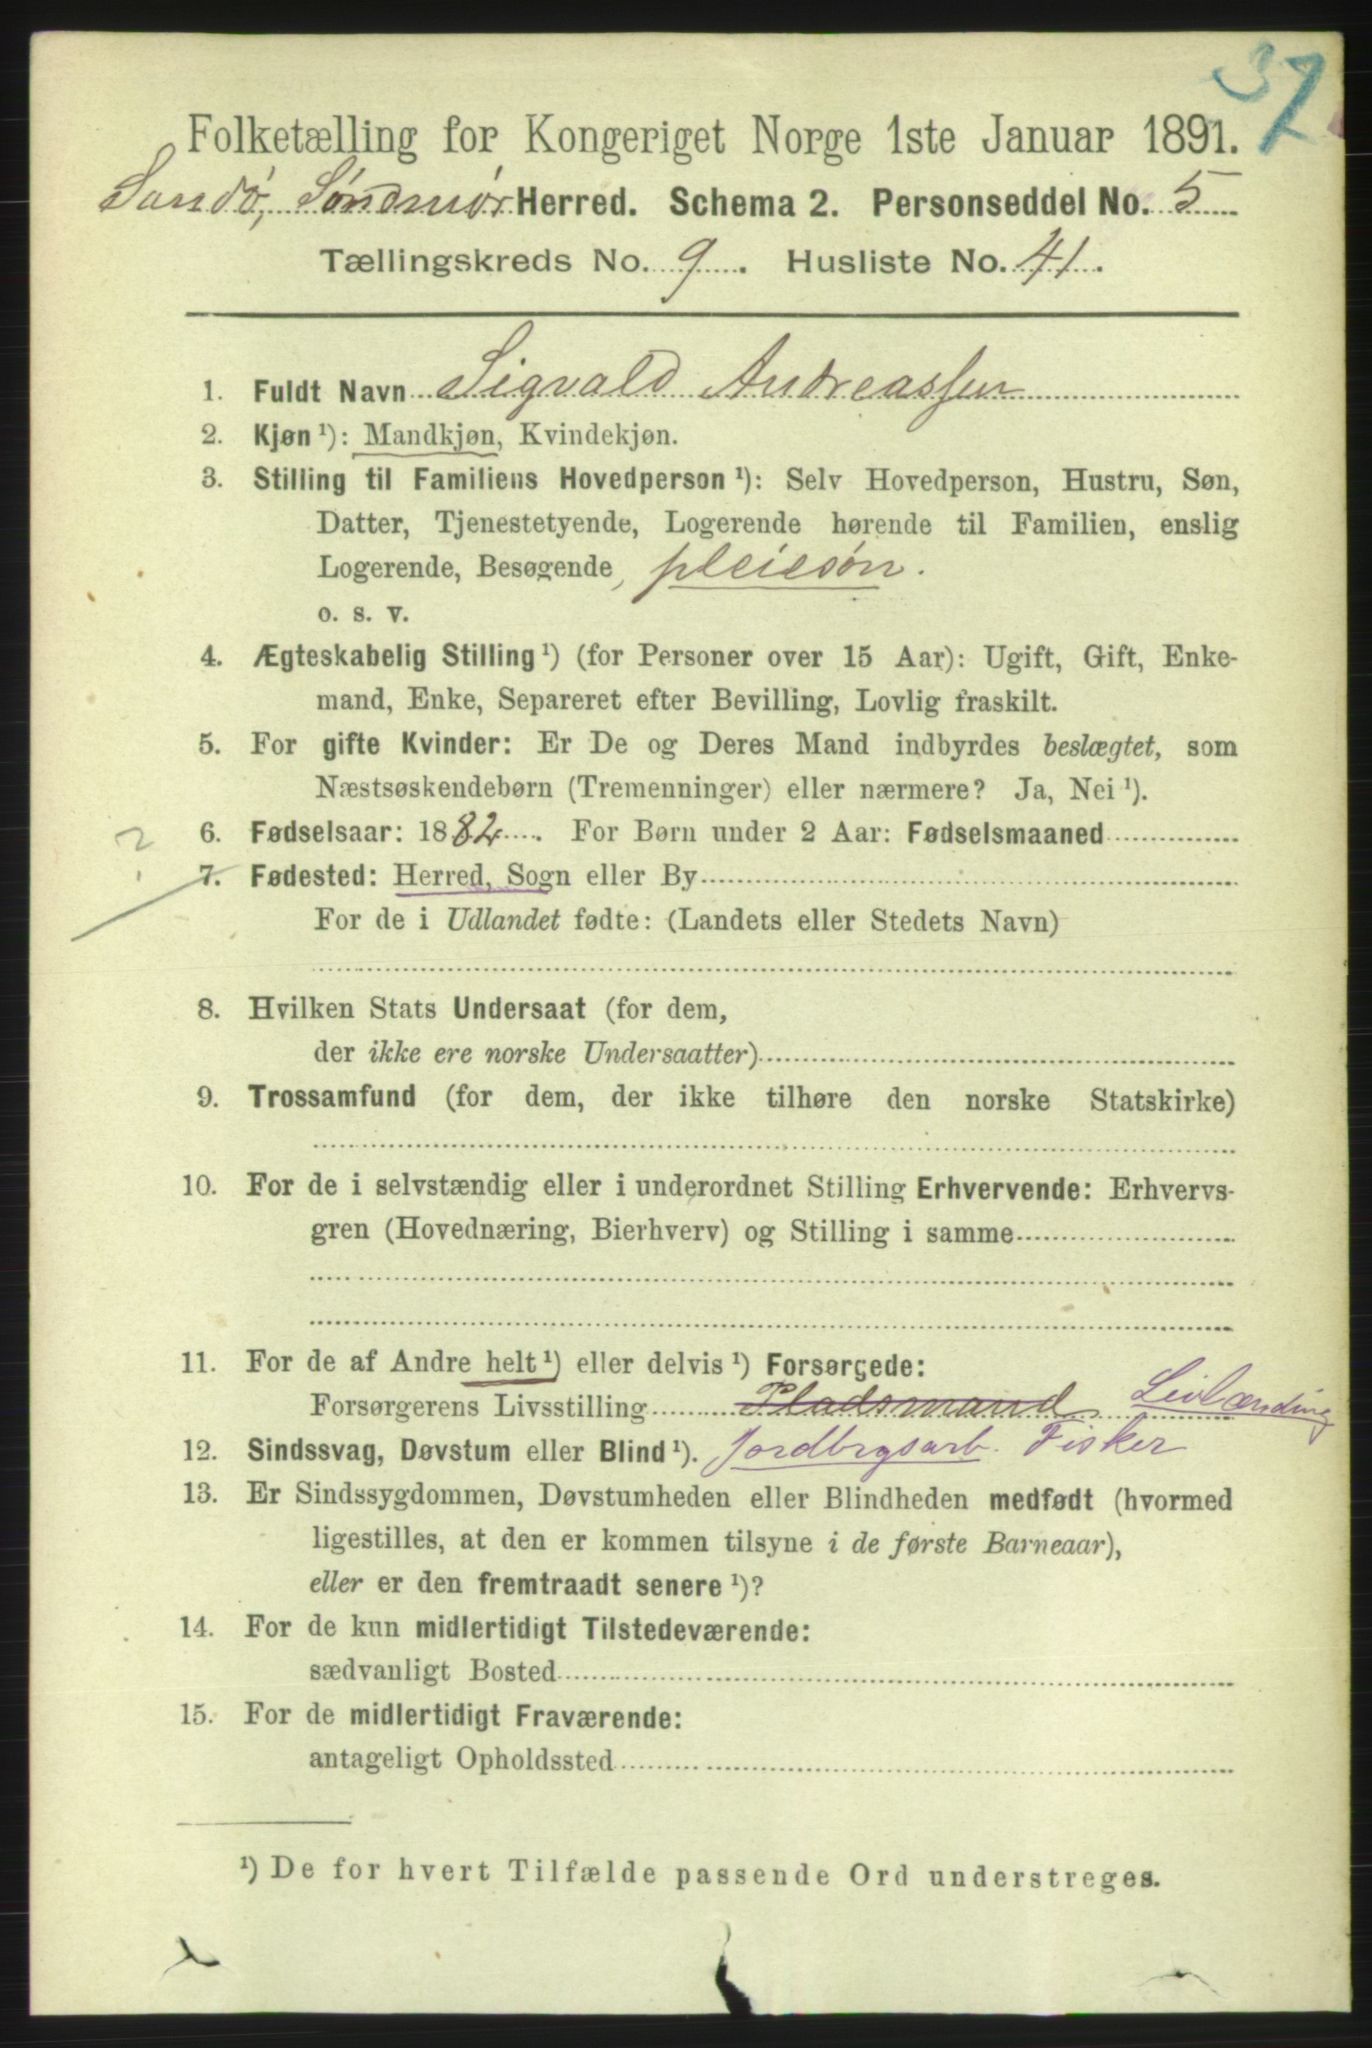 37
Folketælling for Kongeriget Norge 1ste Januar 1891.
Sandø, Søndmør Herred. Schema 2. Personseddel No. 5
Tællingskreds No. 9. Husliste No. 41.
1. Fuldt Navn Sigvald Andreassen
2. Kjøn ¹): Mandkjøn, Kvindekjøn.
3. Stilling til Familiens Hovedperson ¹): Selv Hovedperson, Hustru, Søn,
Datter, Tjenestetyende, Logerende hørende til Familien, enslig
Logerende, Besøgende, pleiesøn.
o. s. v.
4. Ægteskabelig Stilling ¹) (for Personer over 15 Aar): Ugift, Gift, Enke-
mand, Enke, Separeret efter Bevilling, Lovlig fraskilt.
5. For gifte Kvinder: Er De og Deres Mand indbyrdes beslægtet, som
Næstsøskendebørn (Tremenninger) eller nærmere? Ja, Nei ¹).
6. Fødselsaar: 1882. For Børn under 2 Aar: Fødselsmaaned
?
7. Fødested: Herred, Sogn eller By
For de i Udlandet fødte: (Landets eller Stedets Navn)
8. Hvilken Stats Undersaat (for dem,
der ikke ere norske Undersaatter)
9. Trossamfund (for dem, der ikke tilhøre den norske Statskirke)
10. For de i selvstændig eller i underordnet Stilling Erhvervende: Erhvervs-
gren (Hovednæring, Bierhverv) og Stilling i samme
11. For de af Andre helt ¹) eller delvis ¹) Forsørgede:
Forsørgerens Livsstilling Pladsmand Leilænding
12. Sindssvag, Døvstum eller Blind ¹). Jordbrgsarb. Fisker
13. Er Sindssygdommen, Døvstumheden eller Blindheden medfødt (hvormed
ligestilles, at den er kommen tilsyne i de første Barneaar),
eller er den fremtraadt senere ¹)?
14. For de kun midlertidigt Tilstedeværende:
sædvanligt Bosted
15. For de midlertidigt Fraværende:
antageligt Opholdssted
¹) De for hvert Tilfælde passende Ord understreges.